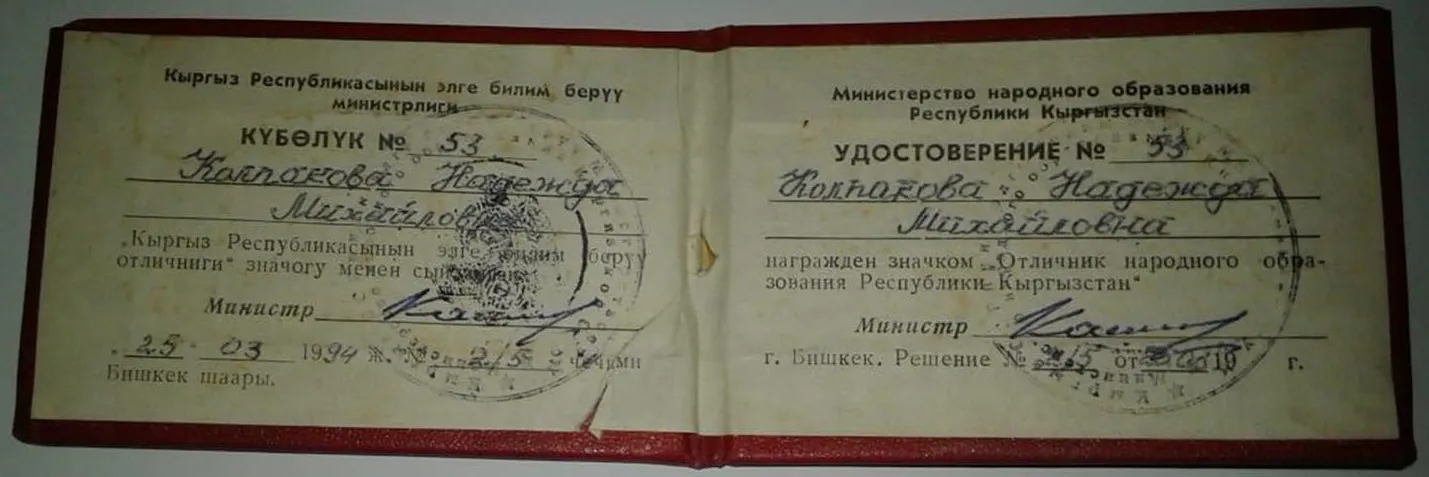 Кыргыз Республикасынын элге билим берүү
министрлиги
КҮБӨЛҮК № 53
Колпакова Надежда
Михайлов
„Кыргыз Республикасынын элге билим берүү
отличниги“ значогу менен
Министр
„25 03 1994 Ж. № 2/5 чечими
Бишкек шаары.
Министерство народного образования
Республики Кыргызстан
УДОСТОВЕРЕНИЕ № 53
Колпакова Надежда
Михайловна
награжден значком „Отличник народного обра-
зования Республики Кыргызстан“
Министр
г. Бишкек. Решение № 2/5 от 19 г.